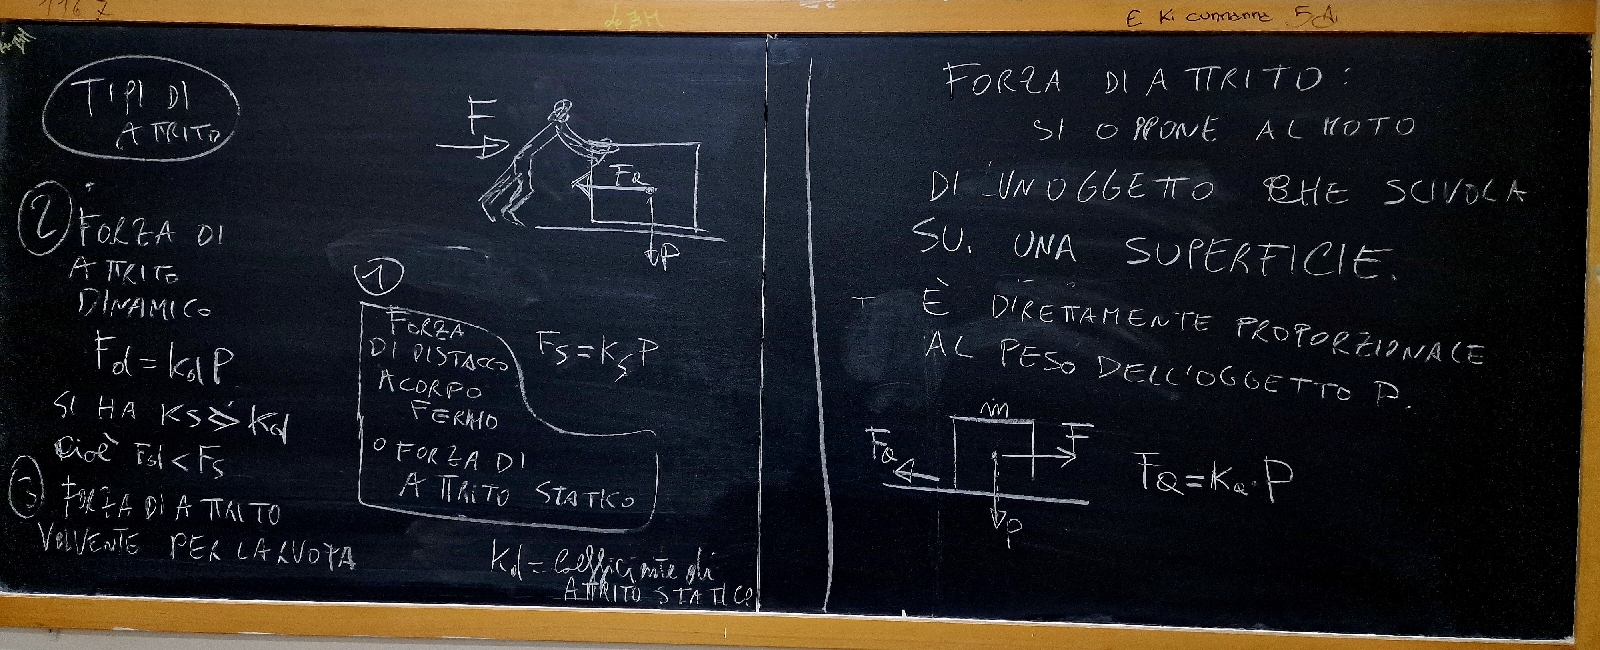 1167
E Ki cumanna 5A
TIPI DI
ATTRITO
F
Fa
P
2
FORZA DI
ATTRITO
DINAMICO
Fd = Kd P
SI HA Ks > Kd
cioè Fd < Fs
3 FORZA DI ATTRITO
VOLVENTE PER LA RUOTA
1
FORZA
DI DISTACCO
A CORPO
FERMO
O FORZA DI
ATTRITO STATICO
Fs = Ks P
Kd = Coefficiente di
ATTRITO STATICO
FORZA DI ATTRITO:
SI OPPONE AL MOTO
DI UN OGGETTO CHE SCIVOLA
SU. UNA SUPERFICIE.
- È DIRETTAMENTE PROPORZIONALE
AL PESO DELL'OGGETTO P.
m
Fa
F
P
Fa = Ka · P